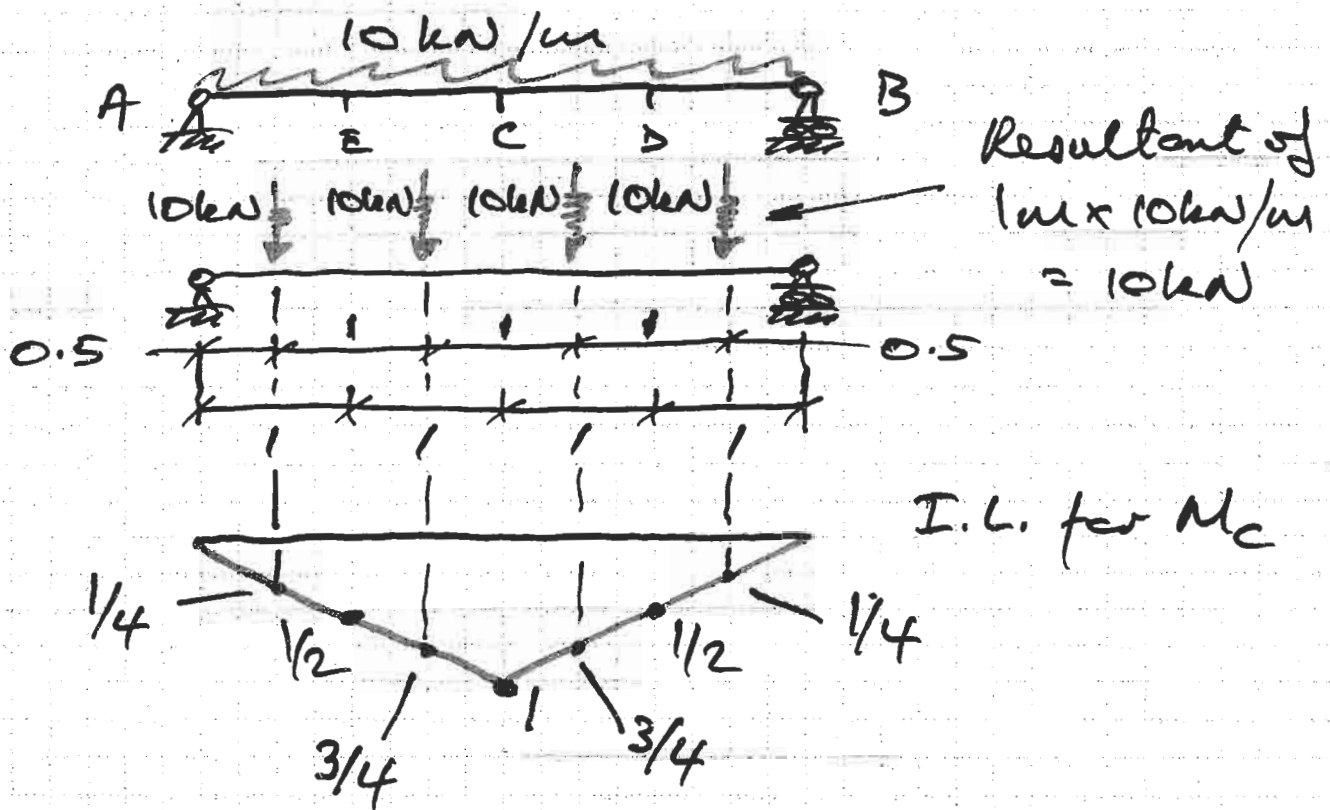 10 kN/m
A
B
E
C
D
10kN
10kN
10kN
10kN
Resultant of
1m x 10kN/m
= 10kN
0.5
1
1
1
0.5
1
1
1
1
I.L. for Mc
1/4
1/2
3/4
1
3/4
1/2
1/4